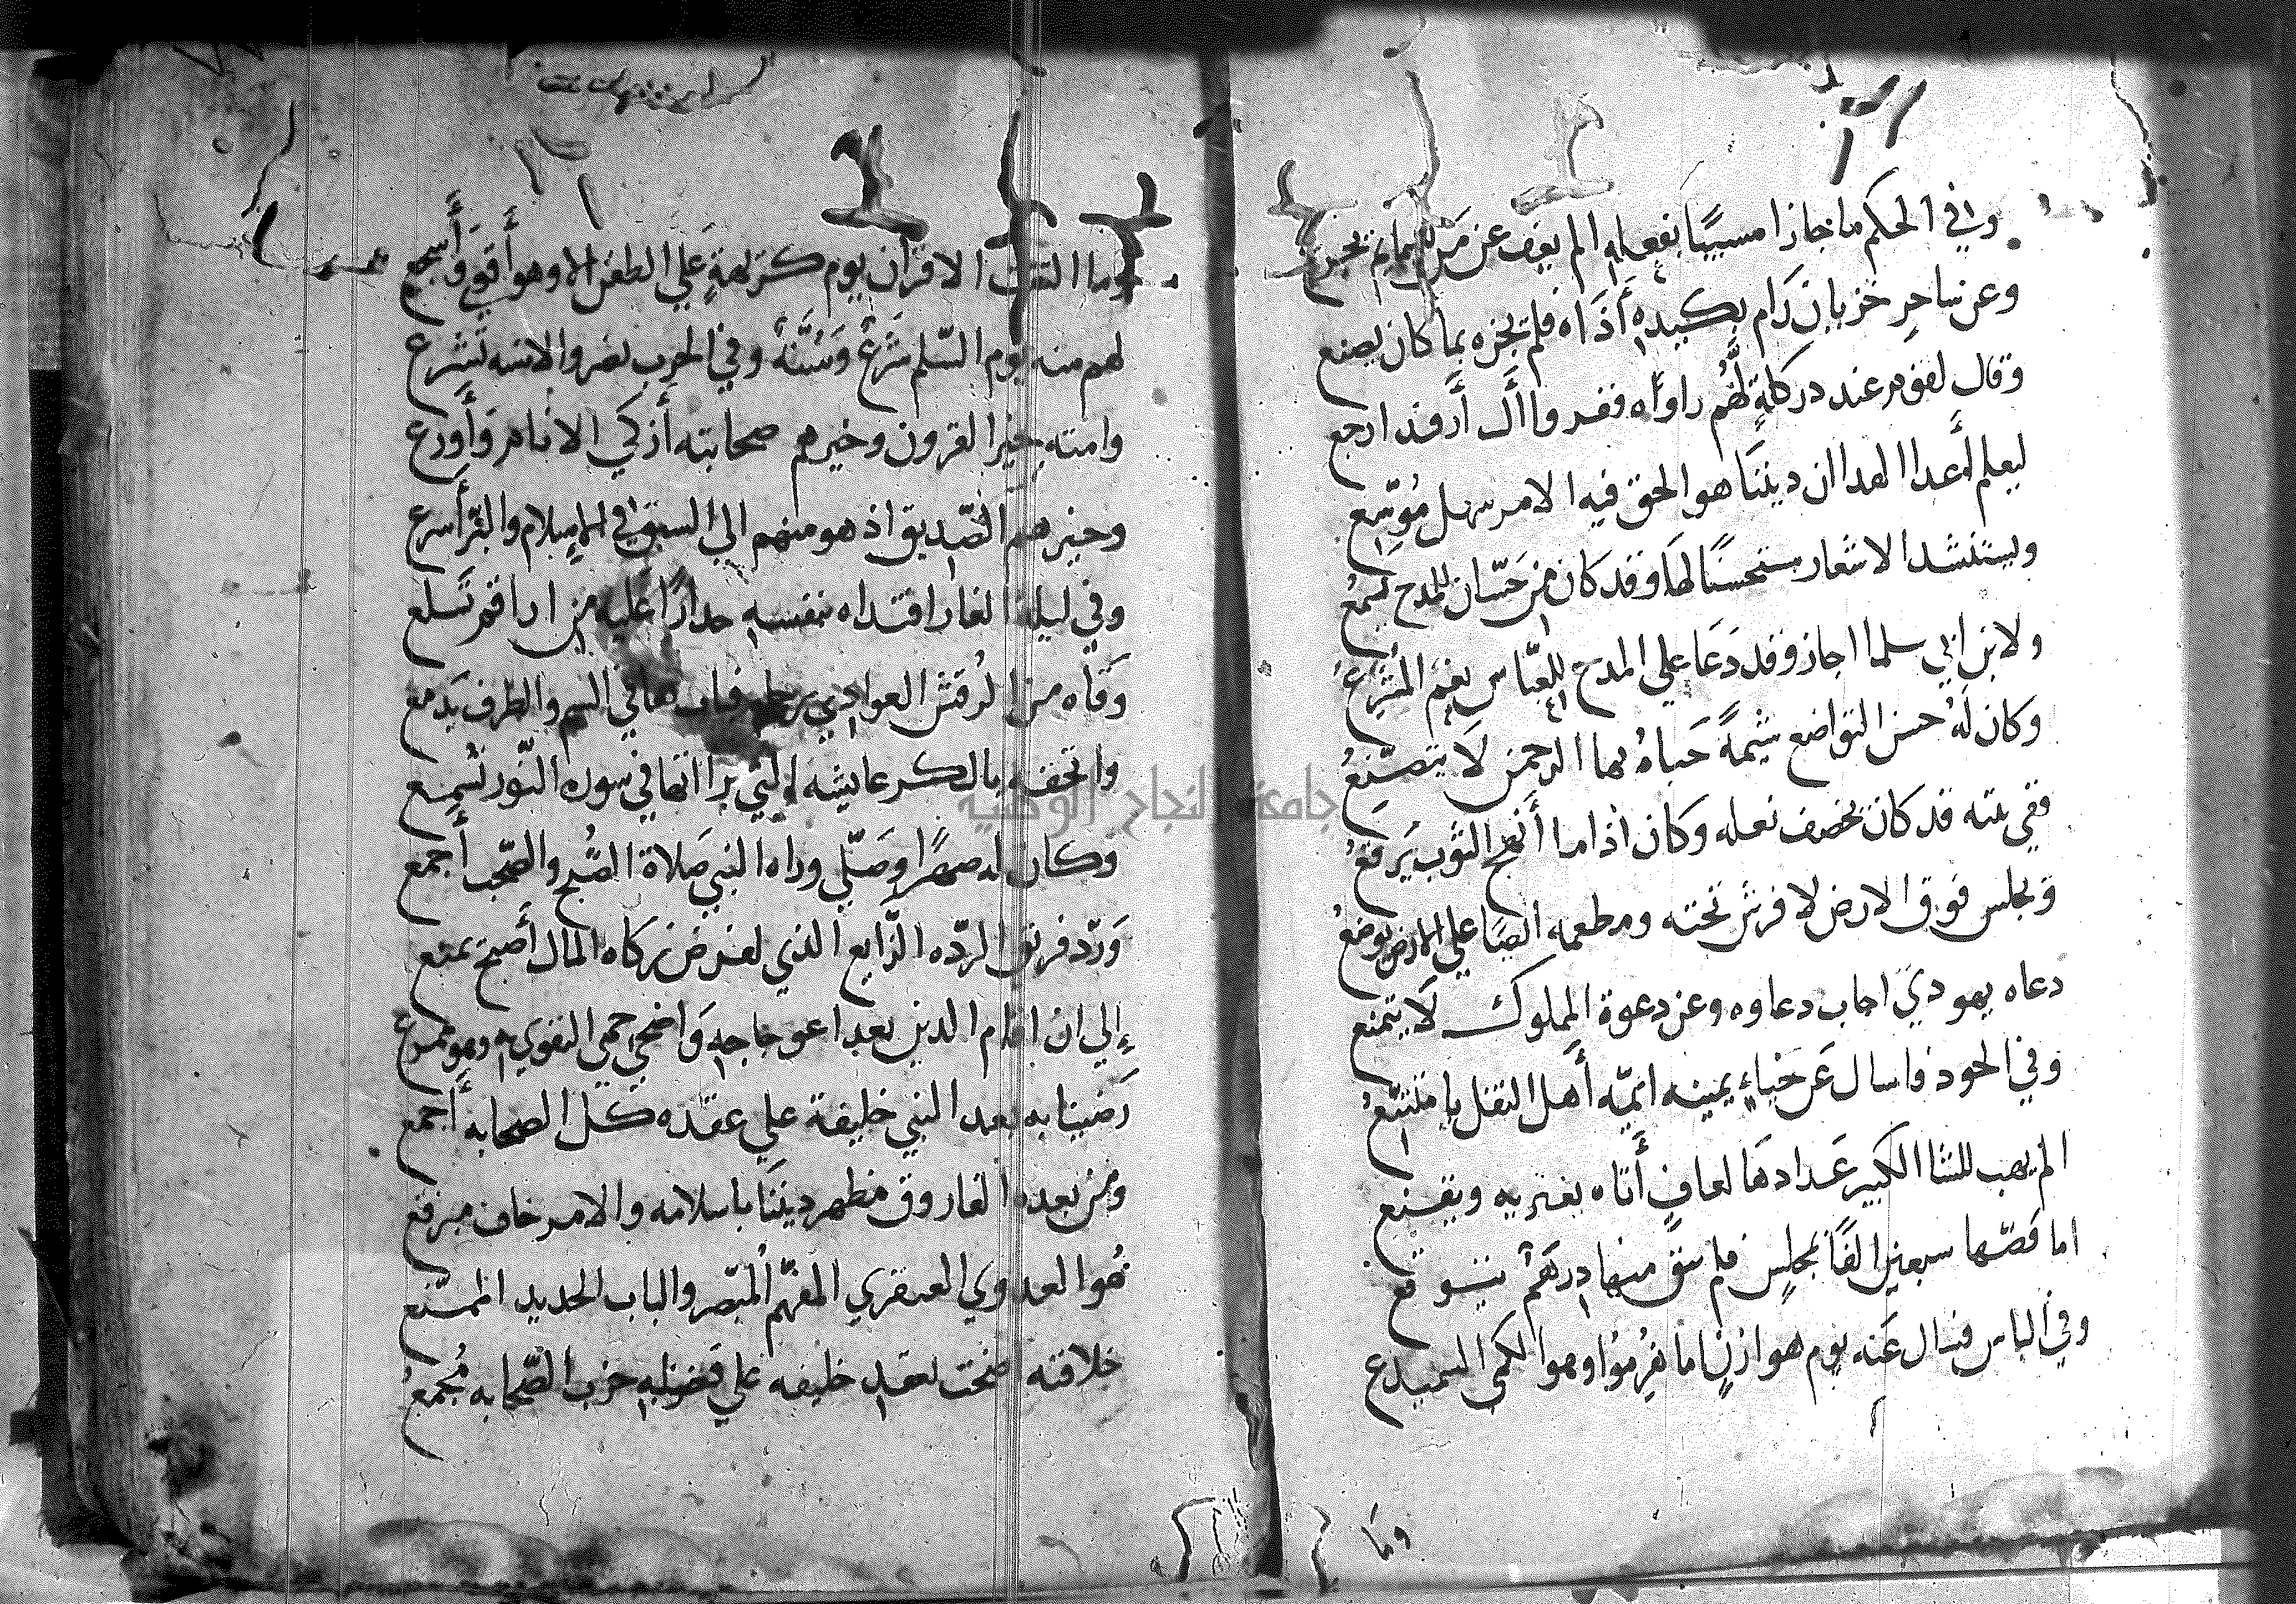 وفي الحكم ما جازا مسيئا بفعله الم يعف عن من
وعن ساحر خزيان رام بكيده أذاه فلم يجزه بما كان يصنع
وقال لقوم عند دركلة لهم راواه ففروا أل أرفدا ارجع
ليعلم أعدا العدا ان ديننا هو الحق فيه الامر سهل موسع
ويستنشد الاشعار مستحسنا لها وقد كان من حسان للمدح يسمع
ولابن ابي سلما اجاز وقد دعا علي المدح للعباس نعم المشرع
وكان له حسن التواضع شيمة حباه بها الرحمن لا يتصنع
ففي بيته قد كان يخصف نعله وكان اذا ما أنهج الثوب يرقع
ويجلس فوق الارض لا فرش تحته ومطعمه ايضا علي الارض يوضع
دعاه يهودي اجاب دعاوه وعن دعوة المملوك لا يتمنع
وفي الجود فاسال عن حباء يمينه ايمة أهل النقل يا متتبع
الم يهب للشا الكبير عدادها لعاف أتاه يعتريه ويقنع
اما قصها سبعين الفا بمجلس فلم يبق منها درهم يتوقع
وفي الباس فسال عنه يوم هوازن اما هزموا وهو الكمي السميدع
وما
وما التقت الاقران يوم كريهة علي الطعن الا وهو أقوي وأشجع
لهم منه يوم السلم شرع وسنة وفي الحرب نصر والاسنه تشرع
وامته خير القرون وخيرهم صحابته أزكي الانام وأورع
وخيرهم الصديق اذ هو منهم الي السبق في الاسلام والبر أسرع
وفي ليلة الغار افتداه بنفسه حذارا عليه من اراقم تسلع
وقاه من الرقش العوادي برجله في السم والطرف يدمع
واتحفه بالبكر عايشه التي براأتها في سورة النور تسمع
وكان له صهرا وصلي وراه النبي صلاة الصبح والصحب أجمع
ورد فريق الرده الزايع الذي لفرض زكاه المال أصبح يمنع
إلي ان اقام الدين بعد اعوجاجه واضحي حمي التقوي به وهو ممرع
رضينا به بعد النبي خليفة علي عقده كل الصحابه أجمع
ومن بعده الفاروق مظهر ديننا باسلامه والامر خاف مبرقع
هو العدوي العبقري المفهم المبصر والباب الحديد الممنع
خلافته اضحت لعقد خليفه علي فضله حزب الصحابه مجمع
جامعة النجاح الوطنية